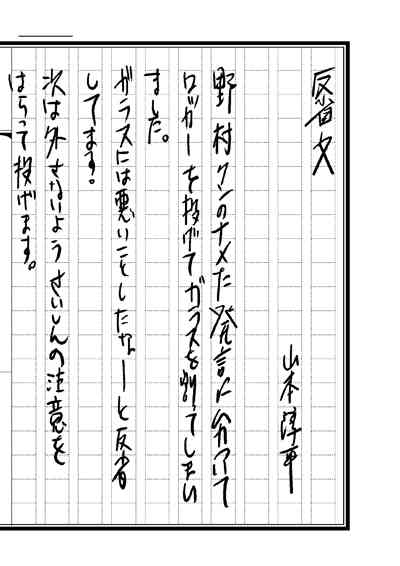 反省文
山本
野村クンのナメた発言にムカついて
ロガーを投げてガラスを割ってしまい
ました。
ガラスには悪いことしたなーと反省
してます。
次は外さないようさいしんの注意を
はらって投げます。